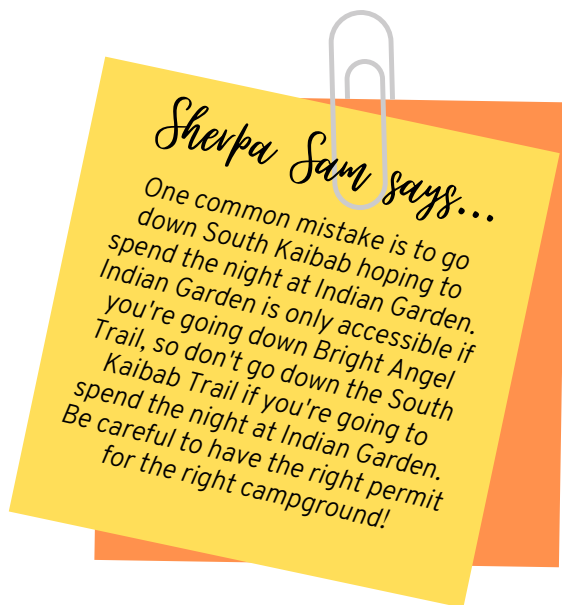 Sherpa Sam says...
One common mistake is to go
down South Kaibab hoping to
spend the night at Indian Garden.
Indian Garden is only accessible if
you're going down Bright Angel
Trail, so don't go down the South
Kaibab Trail if you're going to
spend the night at Indian Garden.
Be careful to have the right permit
for the right campground!